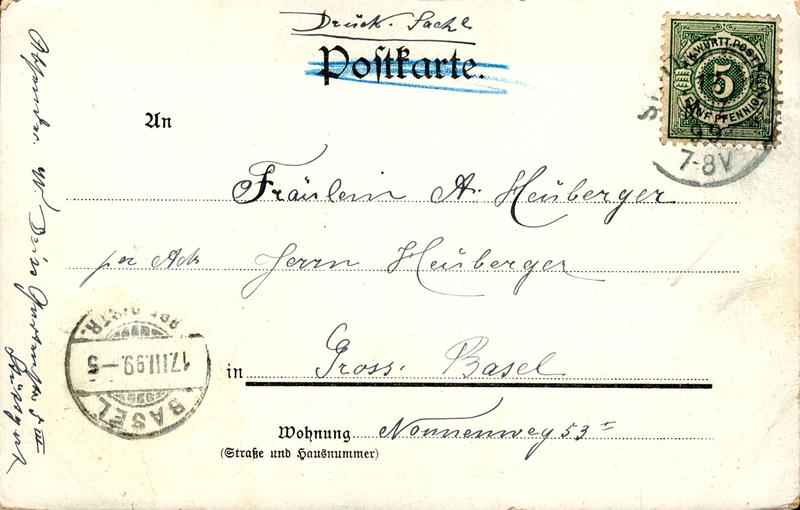 Druck-Sache
Postkarte.
K. WÜRTT. POST
5
FÜNF PFENNIG
99
7-8V
An
Fräulein A. Heuberger
per Adr Herrn Heuberger
in Gross. Basel
Wohnung Nonnenweg 53 I
(Straße und Hausnummer)
BASEL
17.III.99.-5
DISTR.
Absender. W
Stuttgart